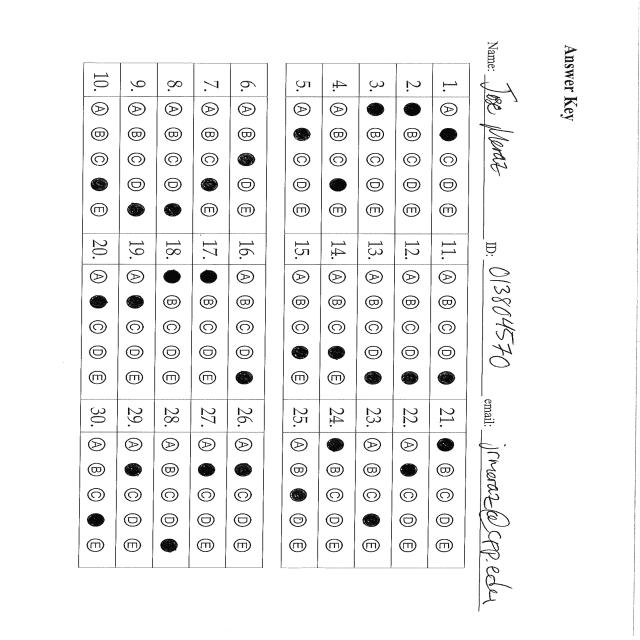 Answer Key
Name: Jose Meraz ID: 013804570 email: jrmeraz@cpp.edu
1. A C D E 11. A B C D 21. B C D E
2. B C D E 12. A B C D 22. A C D E
3. B C D E 13. A B C D 23. A B C E
4. A B C E 14. A B C E 24. B C D E
5. A C D E 15. A B C E 25. A B D E
6. A B D E 16. A B C D 26. A C D E
7. A B C E 17. B C D E 27. A C D E
8. A B C D 18. B C D E 28. A B C D
9. A B C D 19. A C D E 29. A C D E
10. A B C E 20. A C D E 30. A B C E